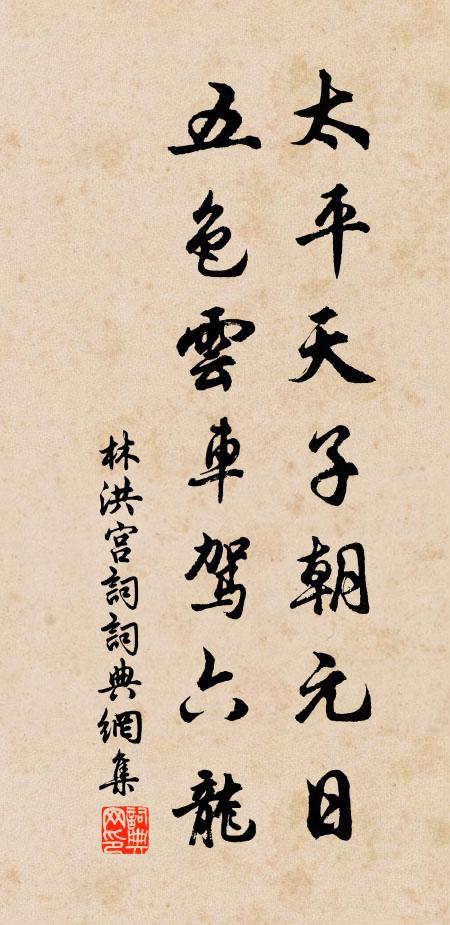 太平天子朝元日
五色雲車駕六龍
林洪宫詞詞典網集
詞典網印